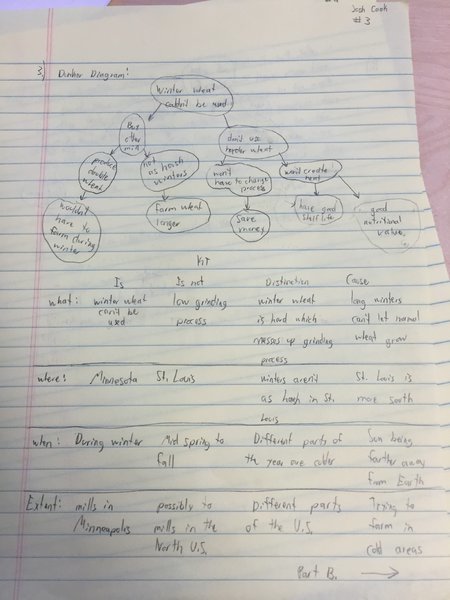 Josh Cook
#3
3.) Dunker Diagram:
Winter wheat
couldn't be used
Buy
other
mill
don't use
harder wheat
produce
double
wheat
not
as harsh
winters
won't
have to change
process
won't create
heat
wouldn't
have to
farm during
winter
farm wheat
longer
save
money
have good
shelf life
good
nutritional
value
KT
Is Is not Distinction Cause
what: winter wheat low grinding winter wheat long winters
can't be process is hard which can't let normal
used messes up grinding wheat grow
process
where: Minnesota St. Louis winters aren't St. Louis is
as harsh in St. more south
Louis
when: During winter Mid spring to Different parts of Sun being
fall the year are colder farther away
from Earth
Extent: mills in possibly to Different parts Trying to
Minneapolis mills in the of the U.S. farm in
North U.S. cold areas
Part B. →